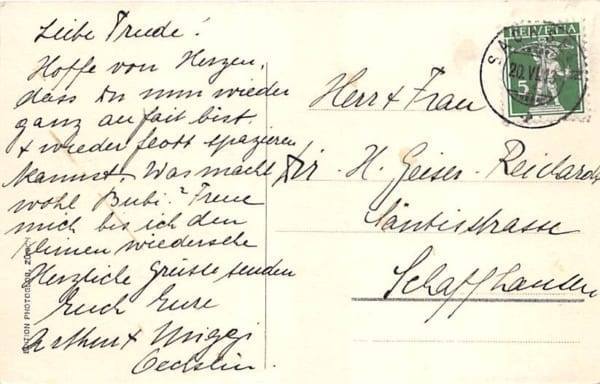 Liebe Trude!
Hoffe von Herzen,
dass Du nun wieder
ganz au fait bist
+ wieder flott spazieren
kannst. Was macht
wohl Bubi? Freue
mich bis ich den
kleinen wiedersehe
Herzliche Grüsse senden
Euch Eure
Arthur + Miggi
Oechslin.
HELVETIA
20.VI.
5
Herr + Frau
Dr. H. Geiser-Reichardt
Säntisstrasse
Schaffhausen